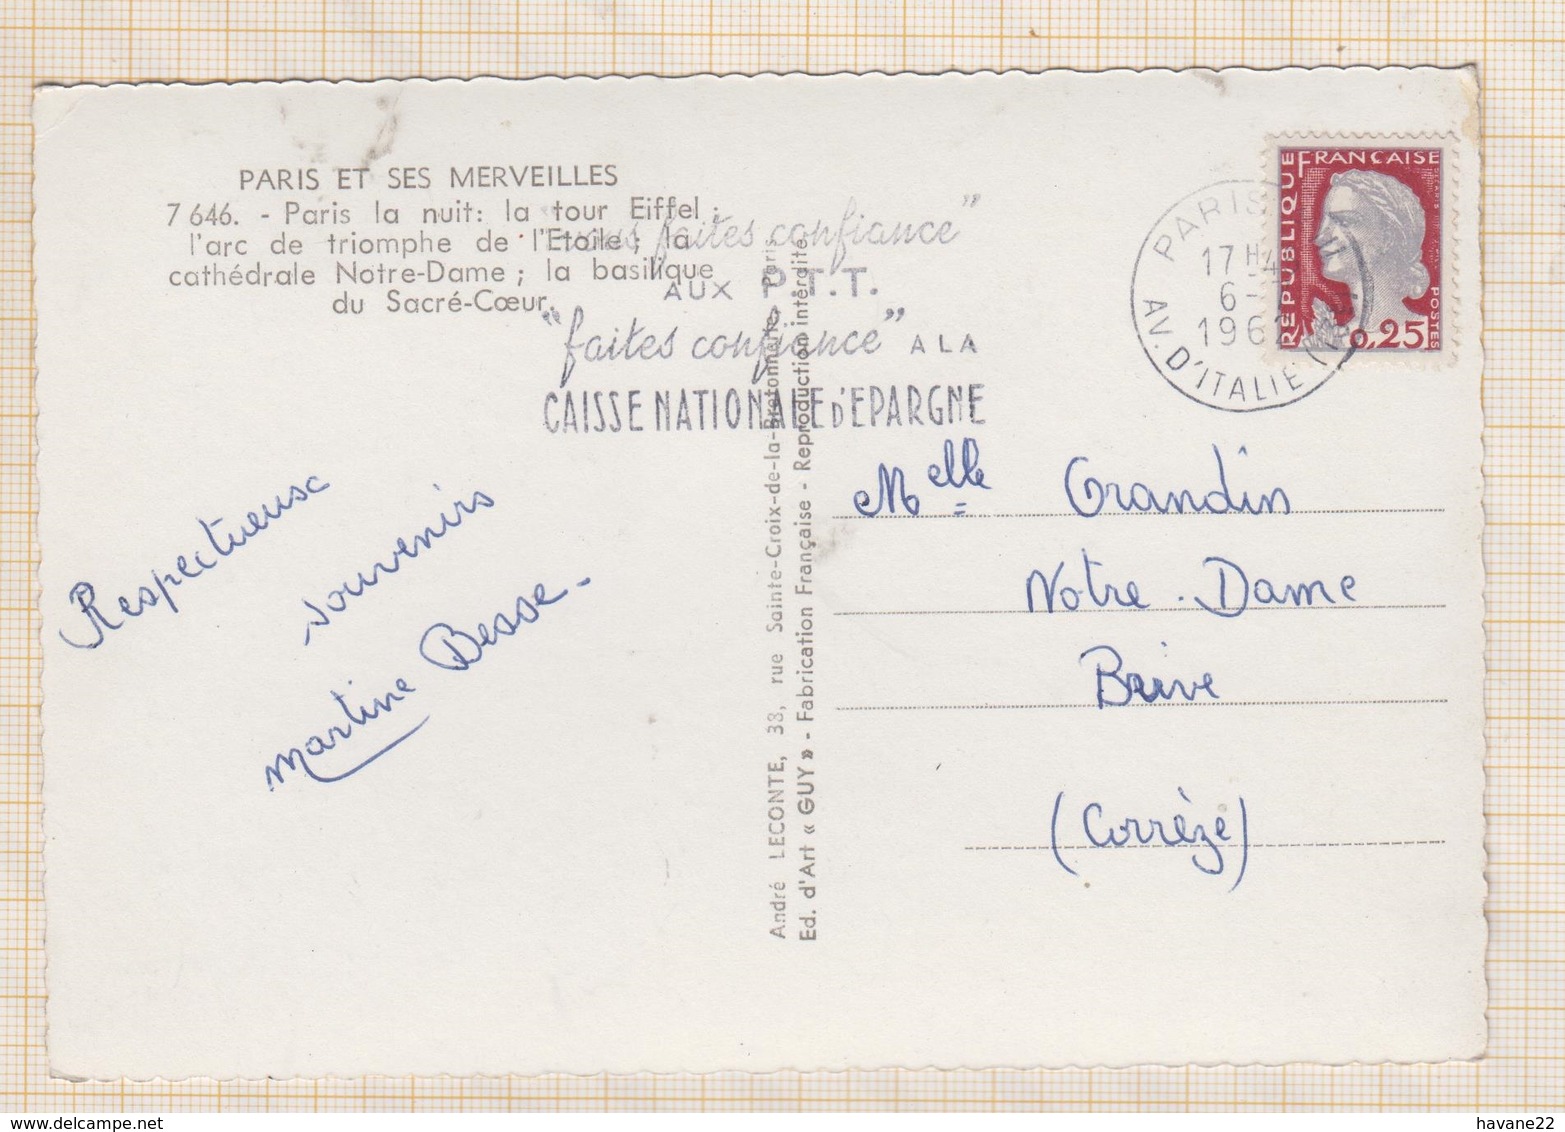 PARIS ET SES MERVEILLES
7 646. - Paris la nuit: la tour Eiffel ;
l'arc de triomphe de l'Etoile ; la
cathédrale Notre-Dame ; la basilique
du Sacré-Cœur.
vous faites confiance"
AUX P.T.T.
"faites confiance" A LA
CAISSE NATIONALE D'EPARGNE
PARIS
17 H
6-
196
AV. D'ITALIE
REPUBLIQUE FRANÇAISE
POSTES
0,25
Respectueux
souvenirs
Martine Besse -
André LECONTE, 38, rue Sainte-Croix-de-la-Bretonnerie, Paris
Ed. d'Art « GUY » - Fabrication Française - Reproduction interdite
Melle Grandin
Notre-Dame
Brive
(Corrèze)
havane22